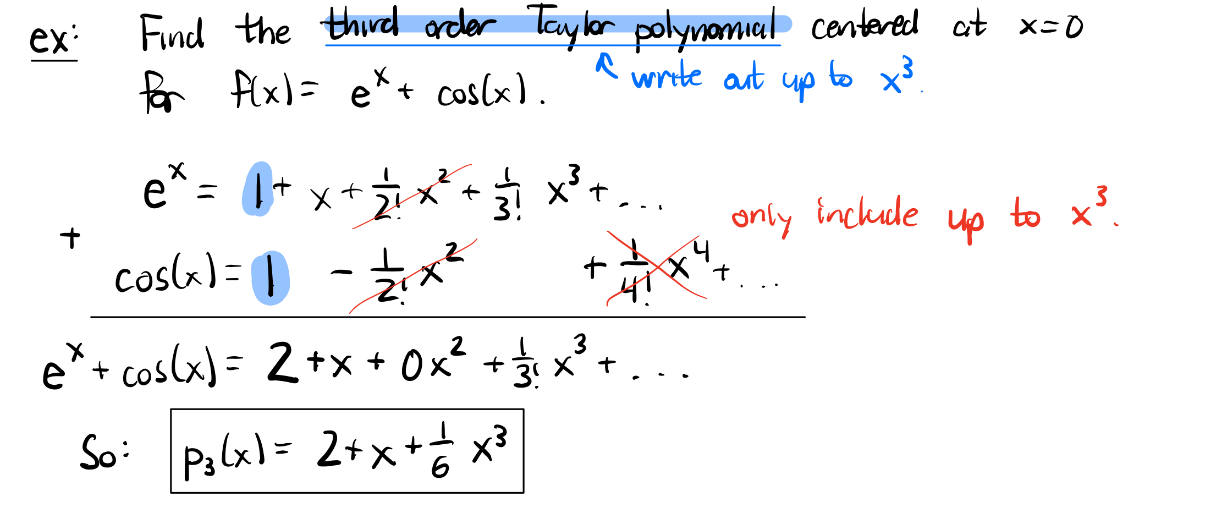 ex: Find the third order Taylor polynomial centered at x=0
↖ write out up to x³.
for f(x) = eˣ + cos(x).
eˣ = 1 + x + 1/2! x² + 1/3! x³ + ...
only include up to x³.
+
cos(x) = 1 - 1/2! x² + 1/4! x⁴ + ...
eˣ + cos(x) = 2 + x + 0x² + 1/3! x³ + ...
So: p₃(x) = 2 + x + 1/6 x³